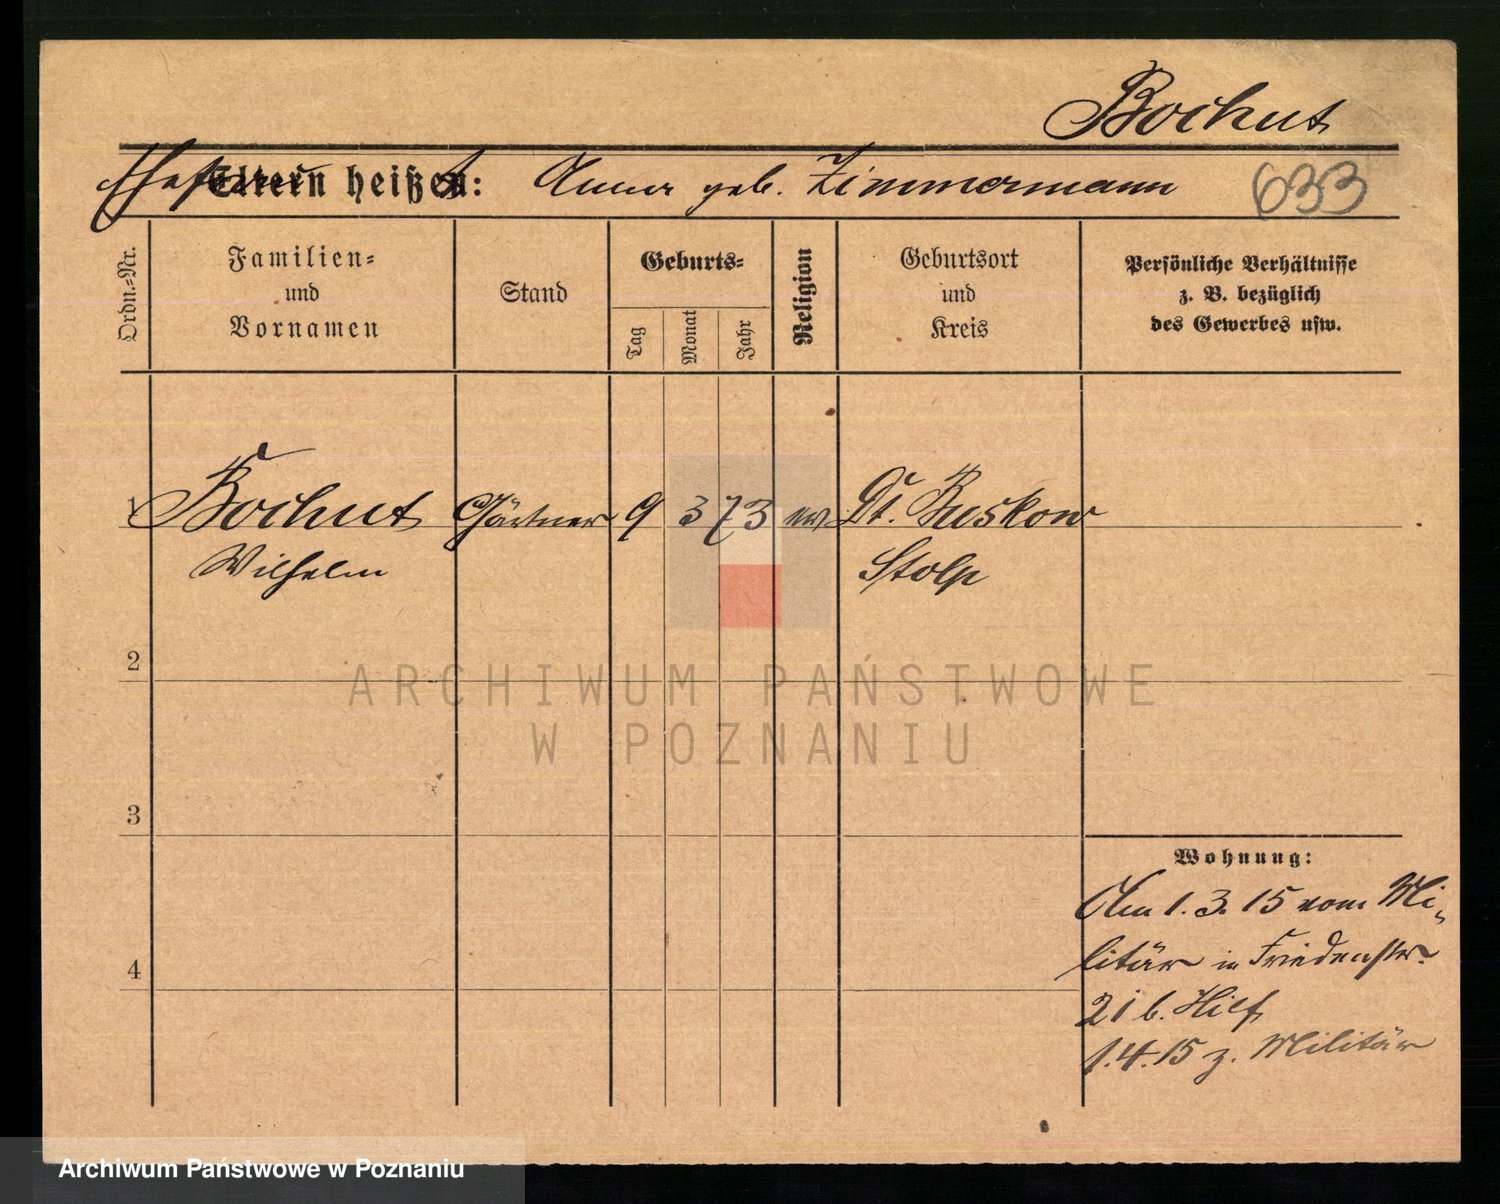 Bochut
Ehefrau heißt: Anna geb. Zimmermann 633
Ordn.-Nr.
Familien-
und
Vornamen
Stand
Geburts-
Tag
Monat
Jahr
Religion
Geburtsort
und
Kreis
Persönliche Verhältnisse
z. B. bezüglich
des Gewerbes usw.
1 Bochut Gärtner 9 3 73 ev. Dt. Buskow
Wilhelm Stolp
2
ARCHIWUM PAŃSTWOWE
W POZNANIU
3
Wohnung:
Am 1. 3. 15 vom Mi-
litär in Friedenstr.
4
21 b. Hilf
1.4.15 z. Militär
Archiwum Państwowe w Poznaniu